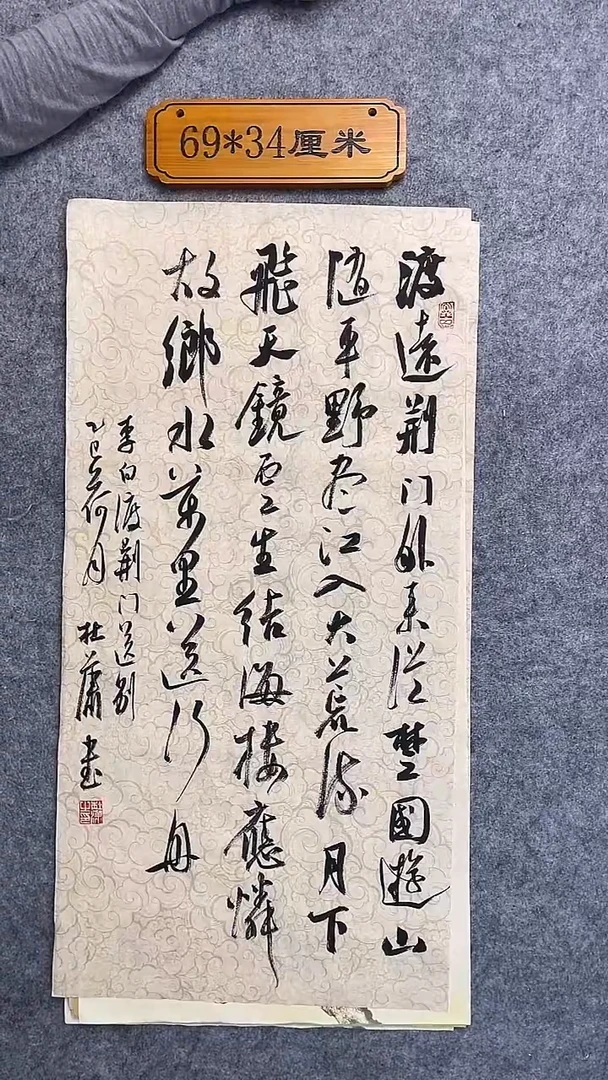 69*34厘米
渡遠荆門外来從楚國遊山
隨平野盡江入大荒流月下
飛天鏡雲生結海樓應憐
故鄉水萬里送行舟
李白渡荆門送别
乙巳荷月 杜蕭書